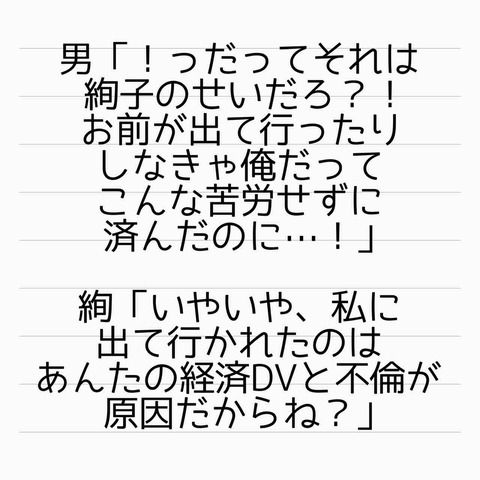 男「！っだってそれは
絢子のせいだろ？！
お前が出て行ったり
しなきゃ俺だって
こんな苦労せずに
済んだのに…！」
絢「いやいや、私に
出て行かれたのは
あんたの経済DVと不倫が
原因だからね？」